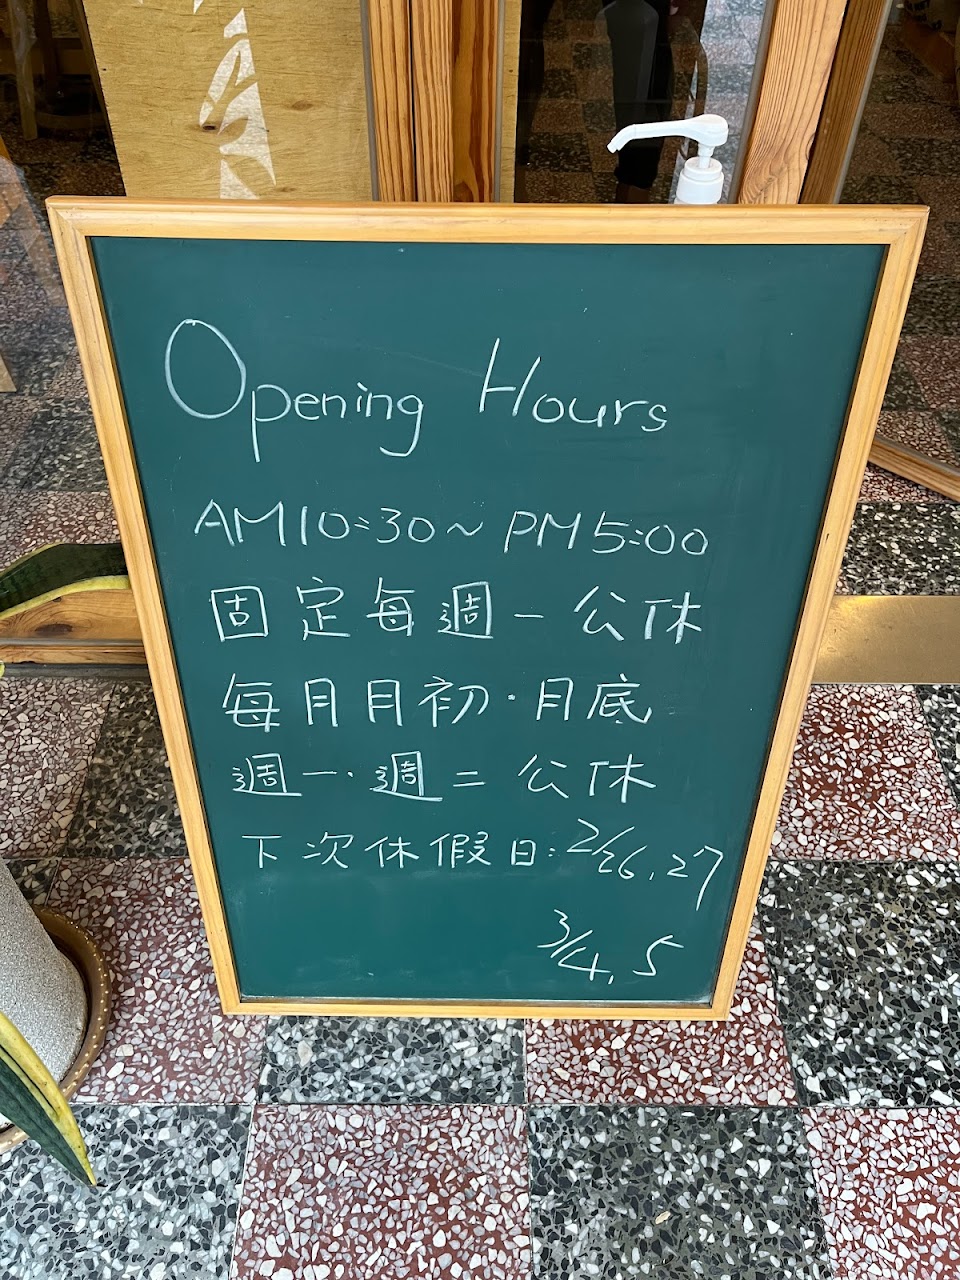 Opening Hours
AM10:30~PM5:00
固定每週一公休
每月月初·月底
週一·週二公休
下次休假日:2/26,27
3/4,5